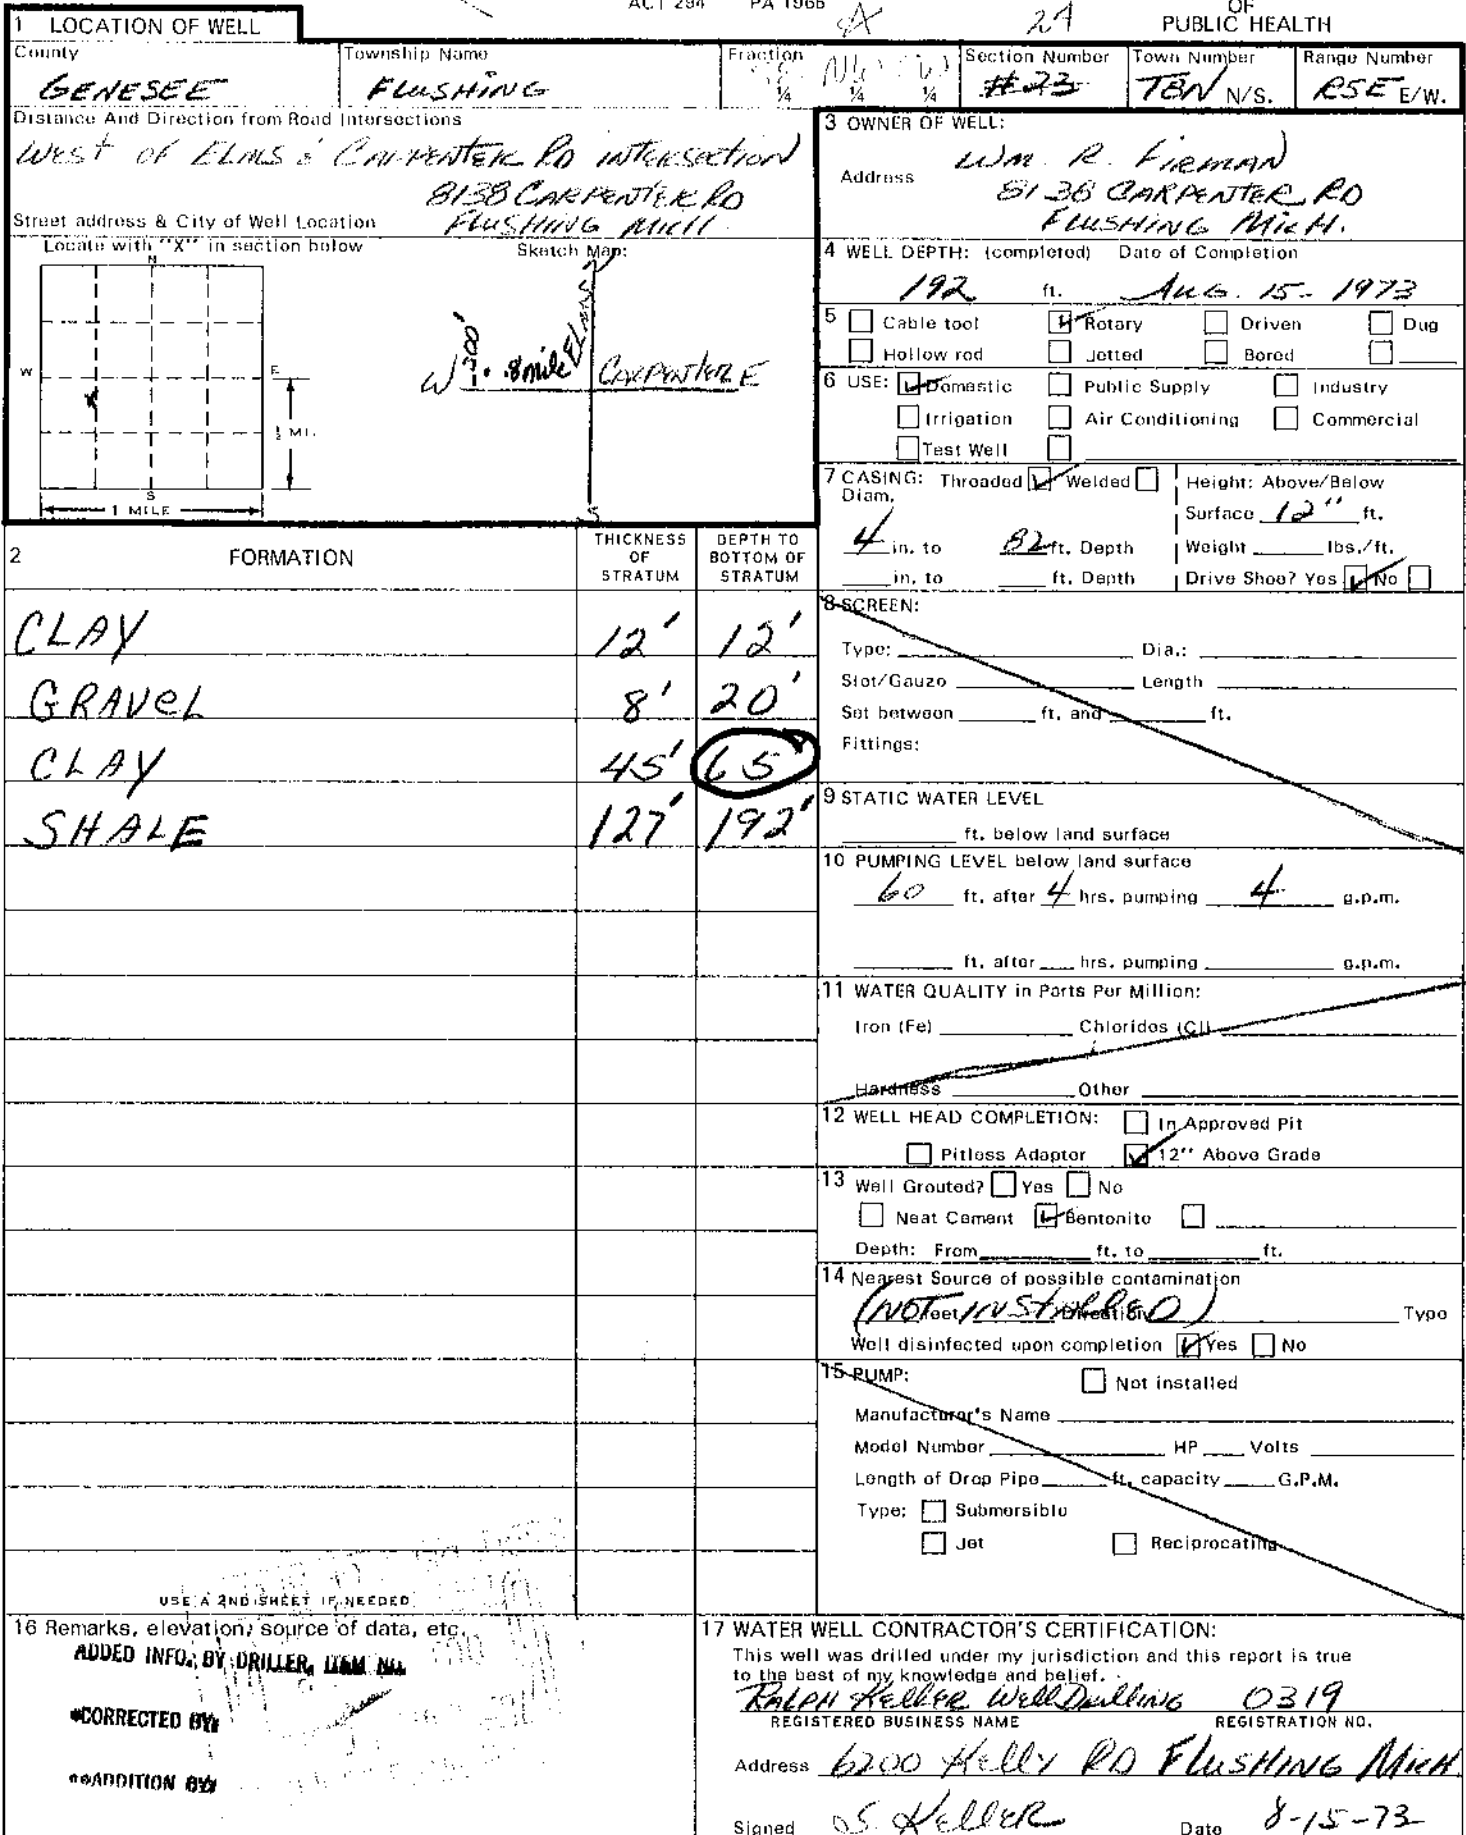 ACT 294 PA 1965
29
OF
PUBLIC HEALTH
1 LOCATION OF WELL
County
GENESEE
Township Name
FLUSHING
Fraction
¼ ¼ ¼
Section Number
#23
Town Number
T8N N/S.
Range Number
R5E E/W.
Distance And Direction from Road Intersections
WEST OF ELMS & CARPENTER RD INTERSECTION
8138 CARPENTER RD
Street address & City of Well Location
FLUSHING MICH.
Locate with "X" in section below
N
W
E
S
X
½ MI.
1 MILE
Sketch Map:
N
ELMS
W 200' .8 mile
CARPENTER E
S
3 OWNER OF WELL:
WM. R. FIRMAN
Address
8138 CARPENTER RD
FLUSHING MICH.
4 WELL DEPTH: (completed) Date of Completion
192 ft. AUG. 15- 1973
5 Cable tool Rotary Driven Dug
Hollow rod Jetted Bored
6 USE: Domestic Public Supply Industry
Irrigation Air Conditioning Commercial
Test Well
7 CASING: Threaded Welded
Diam.
4 in. to 82 ft. Depth
in. to ft. Depth
Height: Above/Below
Surface 12" ft.
Weight lbs./ft.
Drive Shoe? Yes No
2 FORMATION
THICKNESS OF STRATUM
DEPTH TO BOTTOM OF STRATUM
CLAY 12' 12'
GRAVEL 8' 20'
CLAY 45' 65'
SHALE 127' 192'
USE A 2ND SHEET IF NEEDED
8 SCREEN:
Type: Dia.:
Slot/Gauze Length
Set between ft. and ft.
Fittings:
9 STATIC WATER LEVEL
ft. below land surface
10 PUMPING LEVEL below land surface
60 ft. after 4 hrs. pumping 4 g.p.m.
ft. after hrs. pumping g.p.m.
11 WATER QUALITY in Parts Per Million:
Iron (Fe) Chlorides (Cl)
Hardness Other
12 WELL HEAD COMPLETION: In Approved Pit
Pitless Adaptor 12" Above Grade
13 Well Grouted? Yes No
Neat Cement Bentonite
Depth: From ft. to ft.
14 Nearest Source of possible contamination
(NOT INSTALLED)
feet Direction Type
Well disinfected upon completion Yes No
15 PUMP: Not installed
Manufacturer's Name
Model Number HP Volts
Length of Drop Pipe ft. capacity G.P.M.
Type: Submersible
Jet Reciprocating
16 Remarks, elevation, source of data, etc.
ADDED INFO. BY DRILLER, ITEM NO.
*CORRECTED BY
**ADDITION BY
17 WATER WELL CONTRACTOR'S CERTIFICATION:
This well was drilled under my jurisdiction and this report is true
to the best of my knowledge and belief.
RALPH KELLER Well Drilling 0319
REGISTERED BUSINESS NAME REGISTRATION NO.
Address 6200 Kelly RD FLUSHING MICH
Signed S. KELLER Date 8-15-73